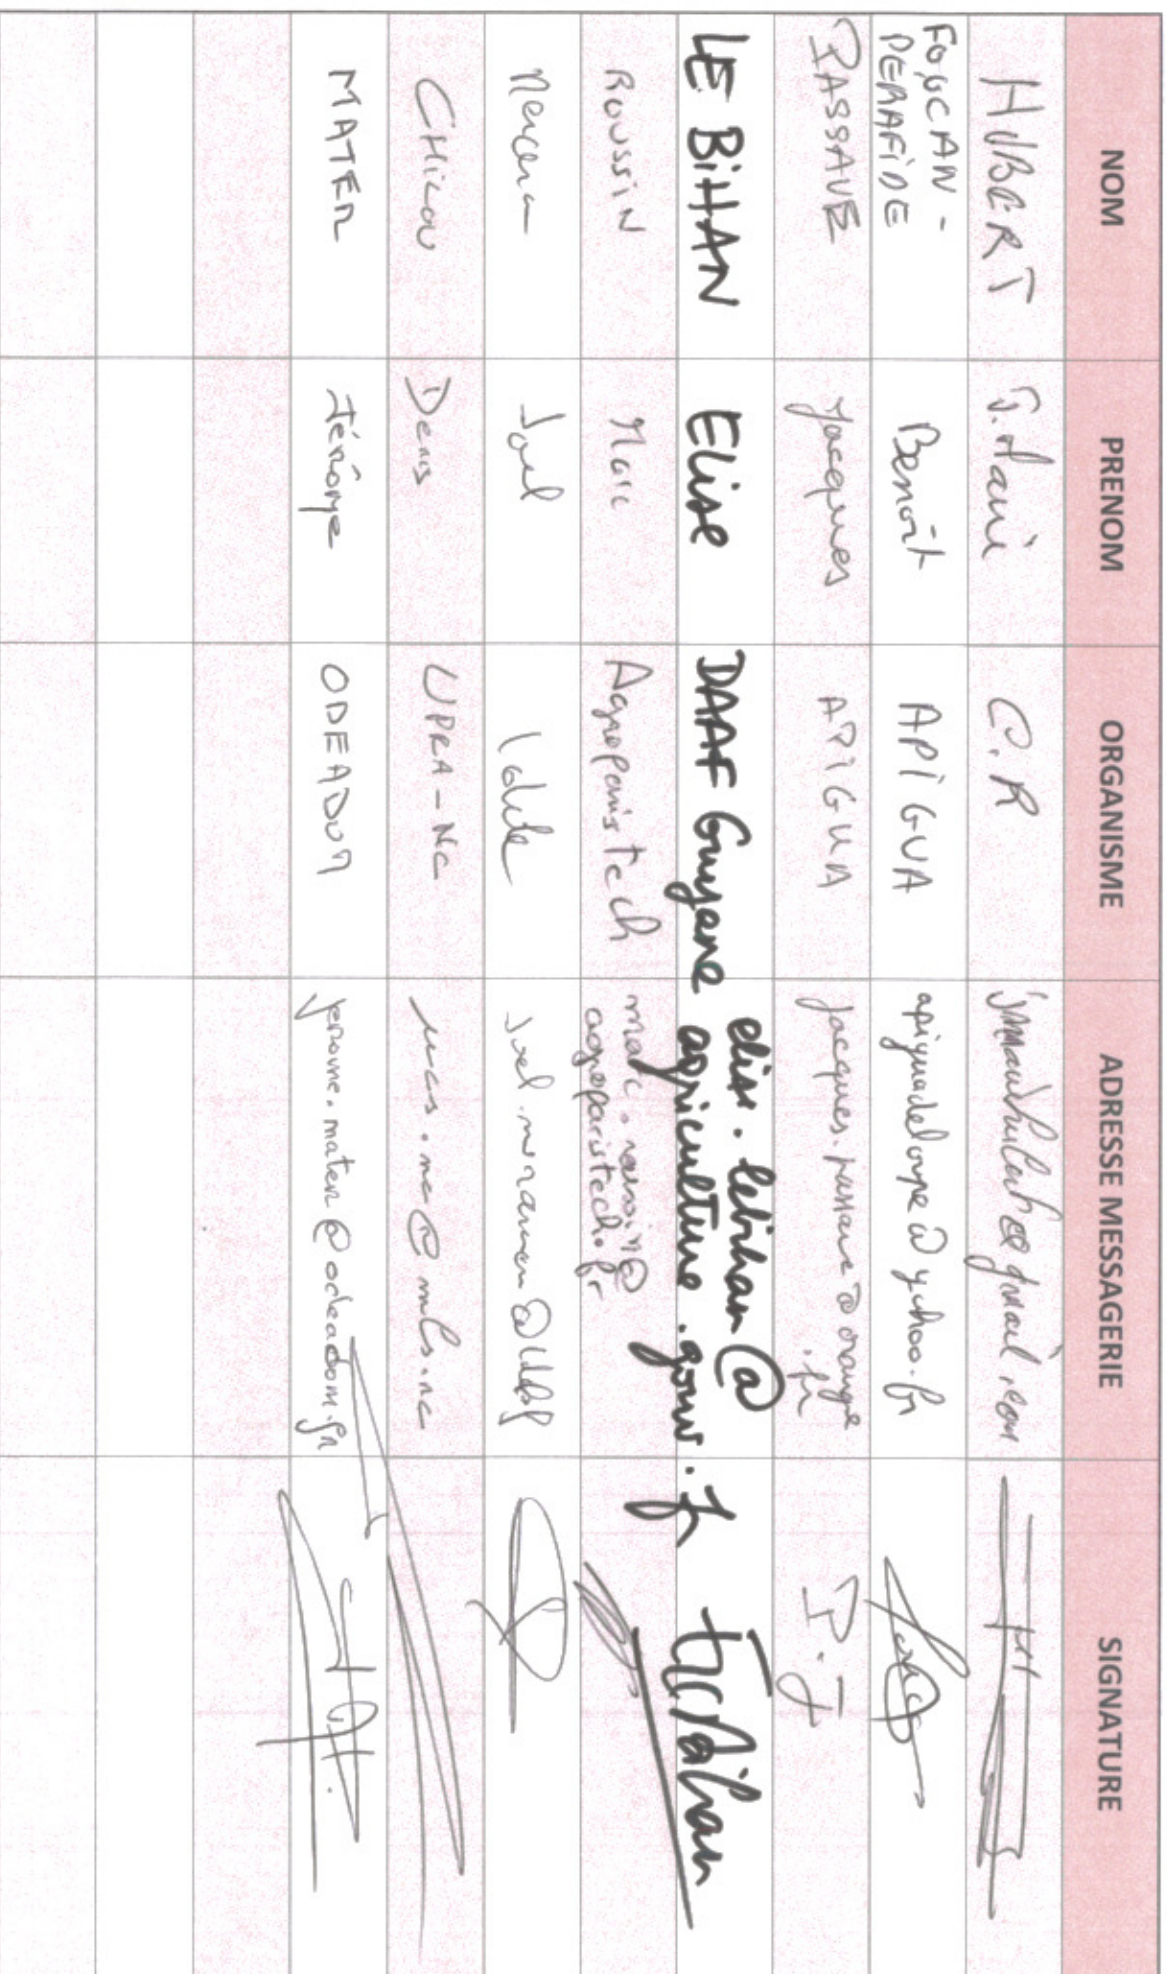 NOM PRENOM ORGANISME ADRESSE MESSAGERIE SIGNATURE
HUBERT J. Marie C.R
FOUCAN -
PERAFIDE Benoît APIGUA apiguadeloupe@yahoo.fr
PASSAVE Jacques APIGUA jacques.passave@orange
.fr
LE BIHAN Elise DAAF Guyane elise.lebihan@
agriculture.gouv.f
ROUSSIN Marc Agroparistech marc.roussin@
agroparistech.fr
Mercera Joel
CHICOU Denis UPRA-NC mls.nc
MATER Jérôme ODEADOM jerome.mater@odeadom.fr
P.J